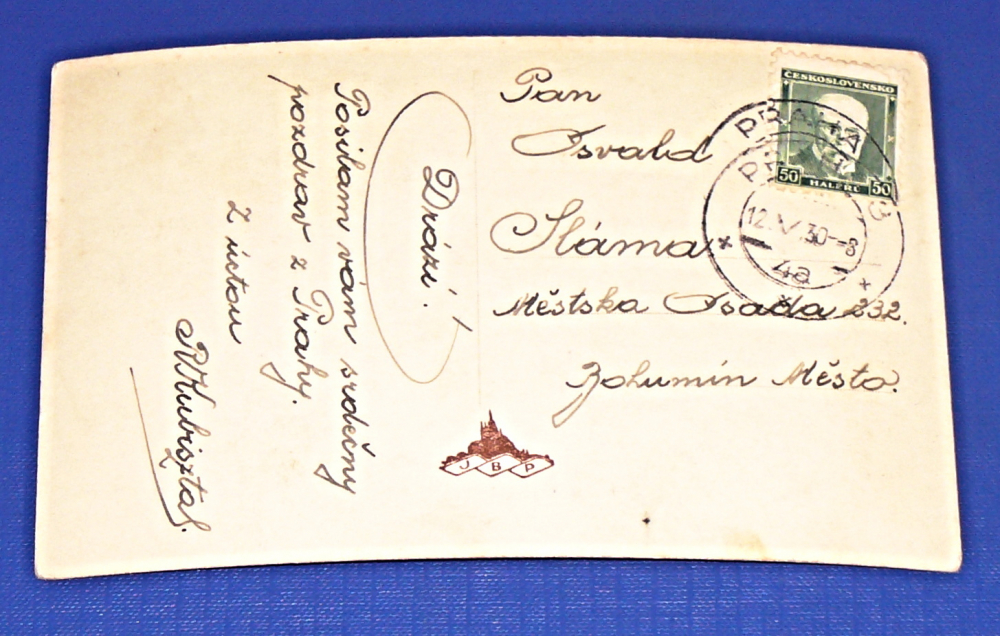 Drází!
Posílám vám srdečný
pozdrav z Prahy.
Z úctou
RKubisztal.
Pan
Osvald
Sláma
Městska Osada 232.
Bohumín Město.
ČESKOSLOVENSKO
50 HALÉŘŮ 50
PRAHA
12.V.30-8
4a
JBP